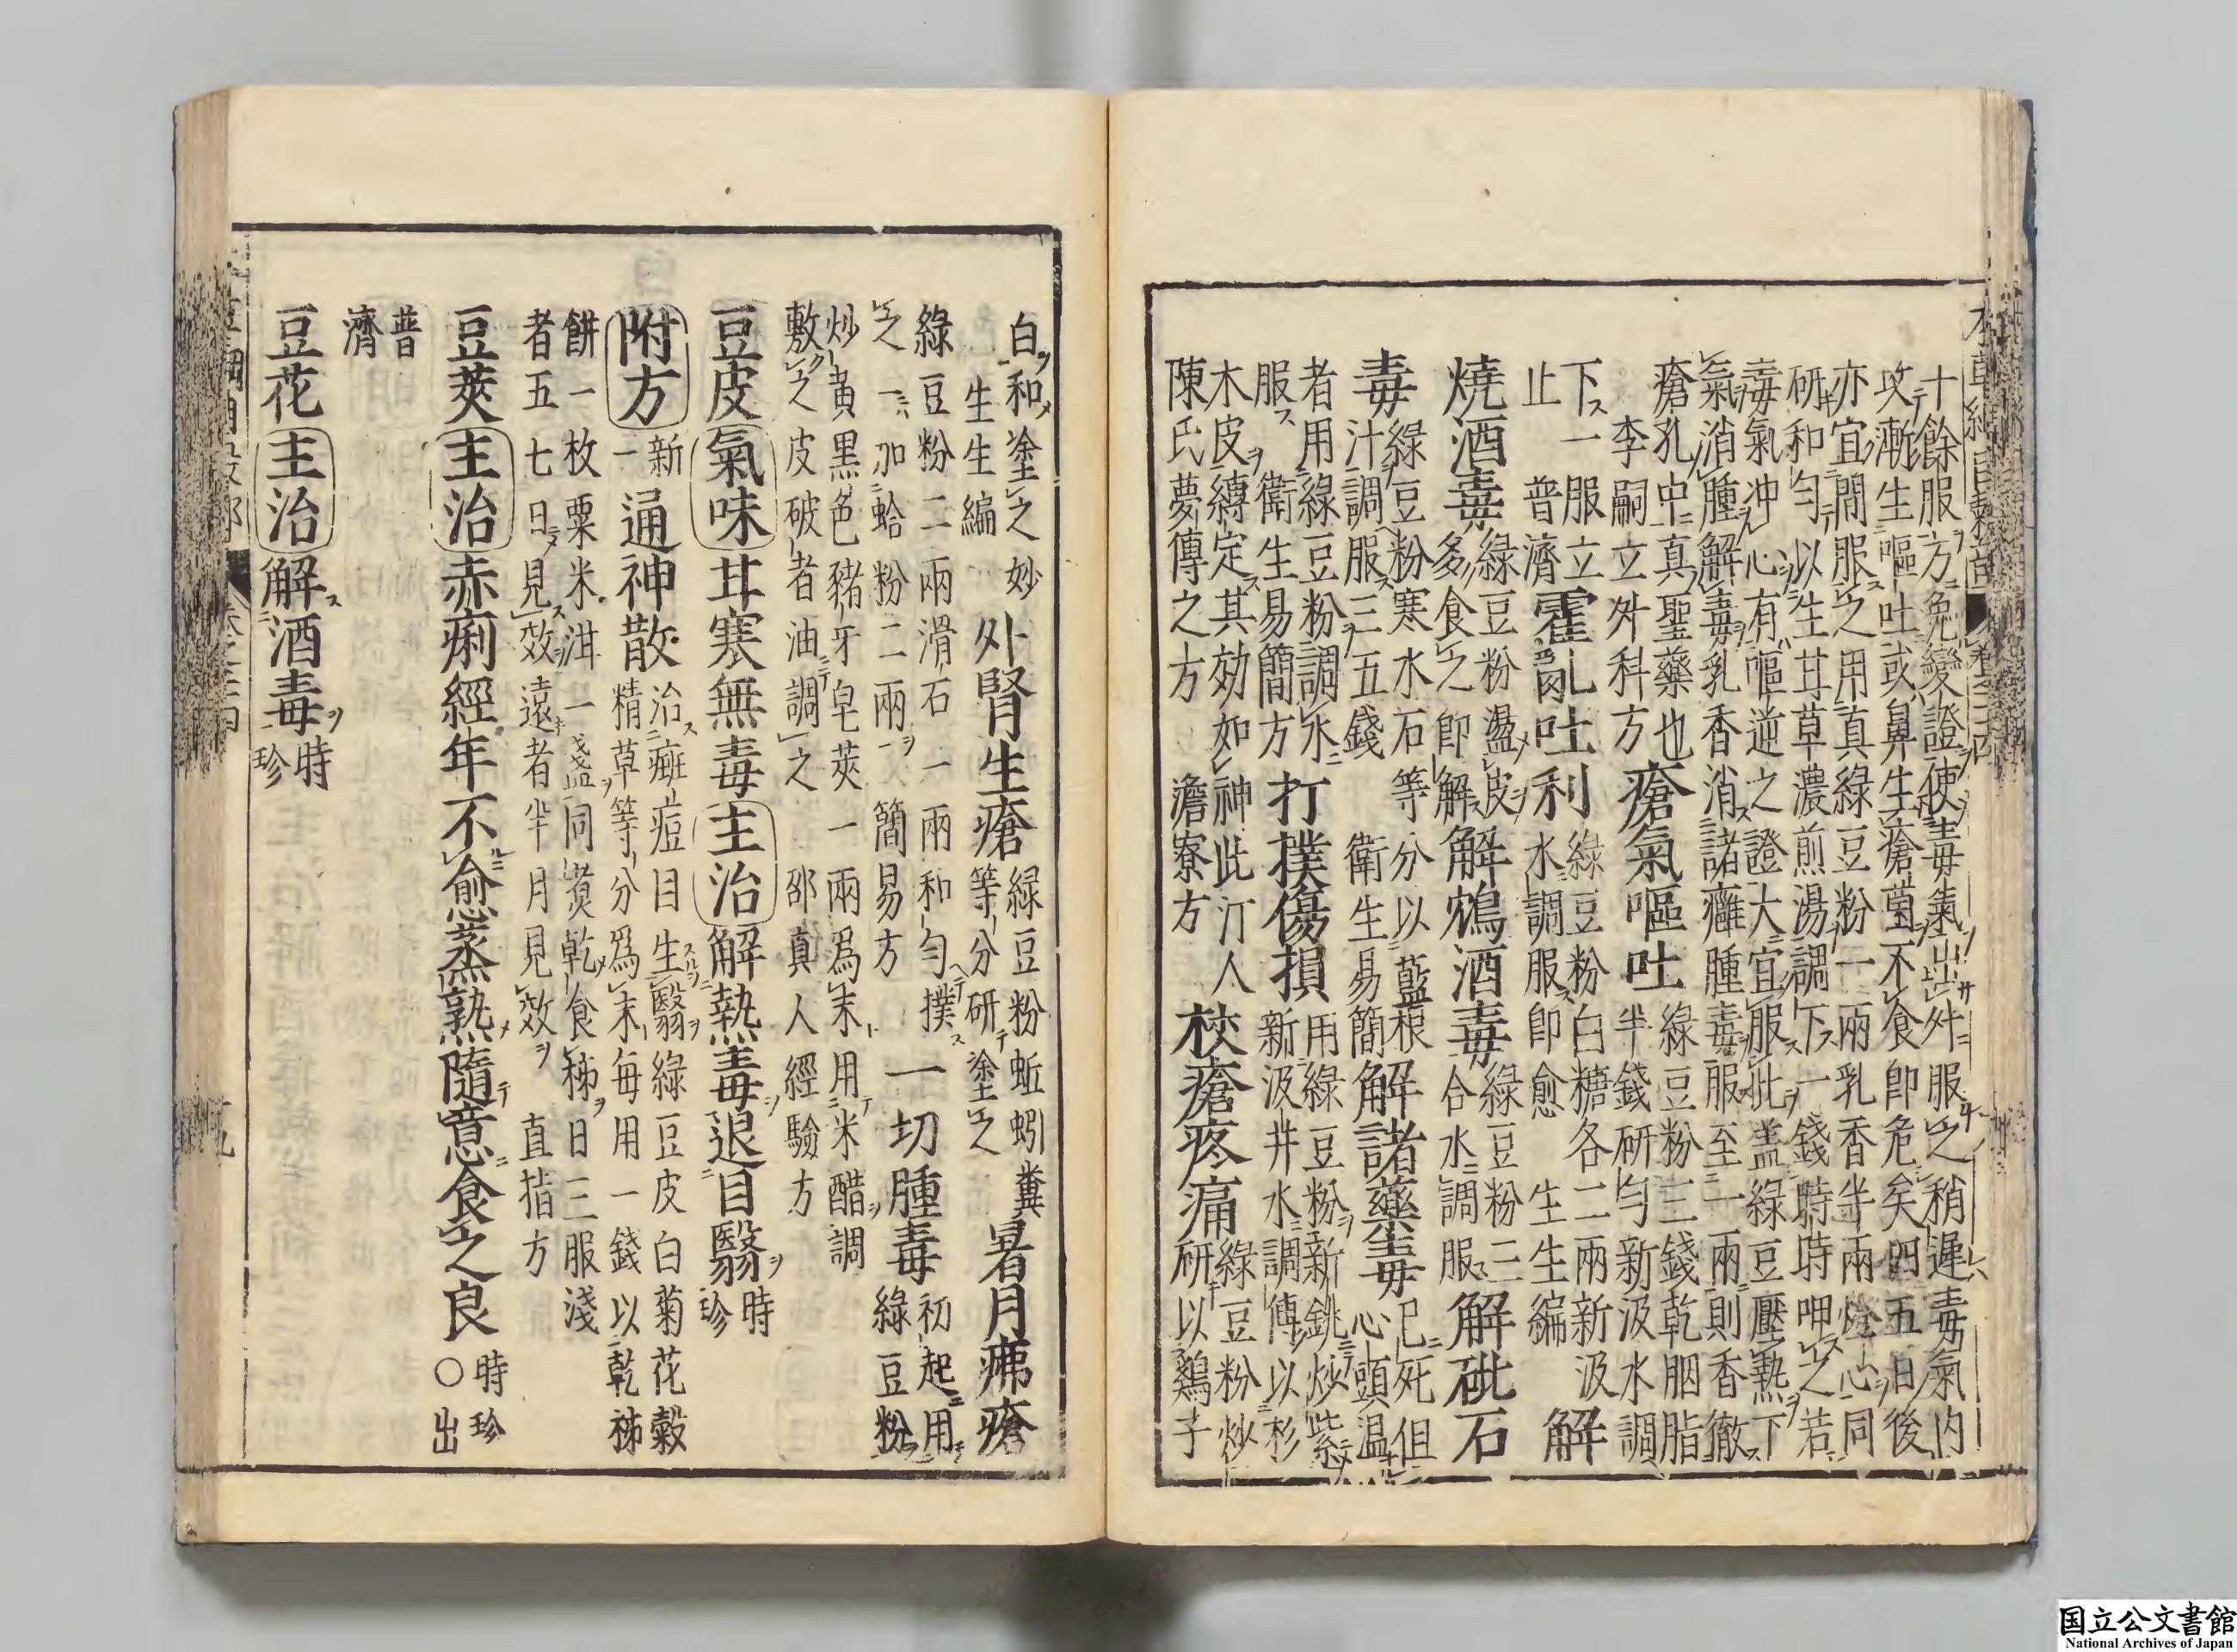 本草綱目穀部 卷之二十四
十餘服方免變證使毒氣出外服之稍遲毒氣內
攻漸生嘔吐或鼻生瘡菌不食即危矣四五日後
亦宜間服之用真綠豆粉一兩乳香半兩燈心同
研和勻以生甘草濃煎湯調下一錢時時呷之若
毒氣冲心有嘔逆之證大宜服此盖綠豆壓熱下
氣消腫解毒乳香消諸癰腫毒服至一兩則香徹
瘡孔中真聖藥也李嗣立外科方 瘡氣嘔吐 綠豆粉三錢乾胭脂半錢研勻新汲水調
下一服立止 普濟 霍亂吐利 綠豆粉白糖各二兩新汲水調服即愈 生生編 解
燒酒毒 綠豆粉盪皮多食之即解 解鴆酒毒 綠豆粉三合水調服 解砒石
毒 綠豆粉寒水石等分以藍根汁調服三五錢 衛生易簡 解諸藥毒 已死但心頭温
者用綠豆粉調水服 衛生易簡方 打撲傷損 用綠豆粉新銚炒紫新汲井水調傅以杉
木皮縛定其効如神此汀人陳氏夢傳之方 澹寮方 杖瘡疼痛 綠豆粉炒研以鷄子
白和塗之妙 生生編 外腎生瘡 綠豆粉蚯蚓糞等分研塗之 暑月痱瘡
綠豆粉二兩滑石一兩和勻撲之一加蛤粉二兩 簡易方 一切腫毒 初起用綠豆粉
炒黄黑色豬牙皂莢一兩爲末用米醋調敷之皮破者油調之 邵真人經驗方
豆皮 氣味 甘寒無毒 主治 解熱毒退目翳 時珍
附方 新一 通神散 治癍痘目生翳綠豆皮白菊花穀精草等分爲末每用一錢以乾柹
餅一枚粟米泔一盞同煑乾食柹日三服淺者五七日見效遠者半月見效 直指方
豆莢 主治 赤痢經年不愈蒸熟隨意食之良 時珍○出
普濟
豆花 主治 解酒毒 時珍
國立公文書館
National Archives of Japan